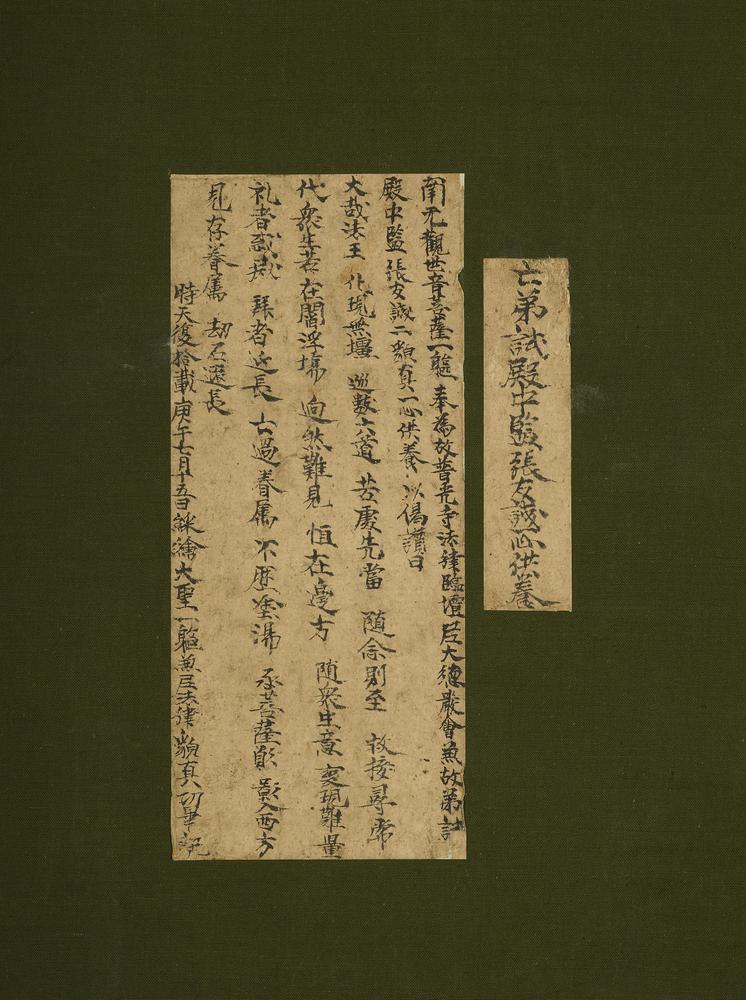 亡弟試殿中監張友誠一心供養
南无觀世音菩薩一軀 奉為故普光寺法律臨壇尼大德嚴會兼故弟試
殿中監張友誠二邈真一心供養 以偈讚曰
大哉法王 化現無壃 巡歷六道 苦處先當 隨念則至 救接尋常
代衆生苦 在閻浮塲 逈然難見 恒在邊方 隨衆生意 變現難量
礼者 拜者延長 亡過眷屬 不歷塗湯 承菩薩願 影入西方
見存眷屬 劫石遐長
時天復拾載庚午七月十五日綵繪大聖一軀兼尼法律邈真功畢記